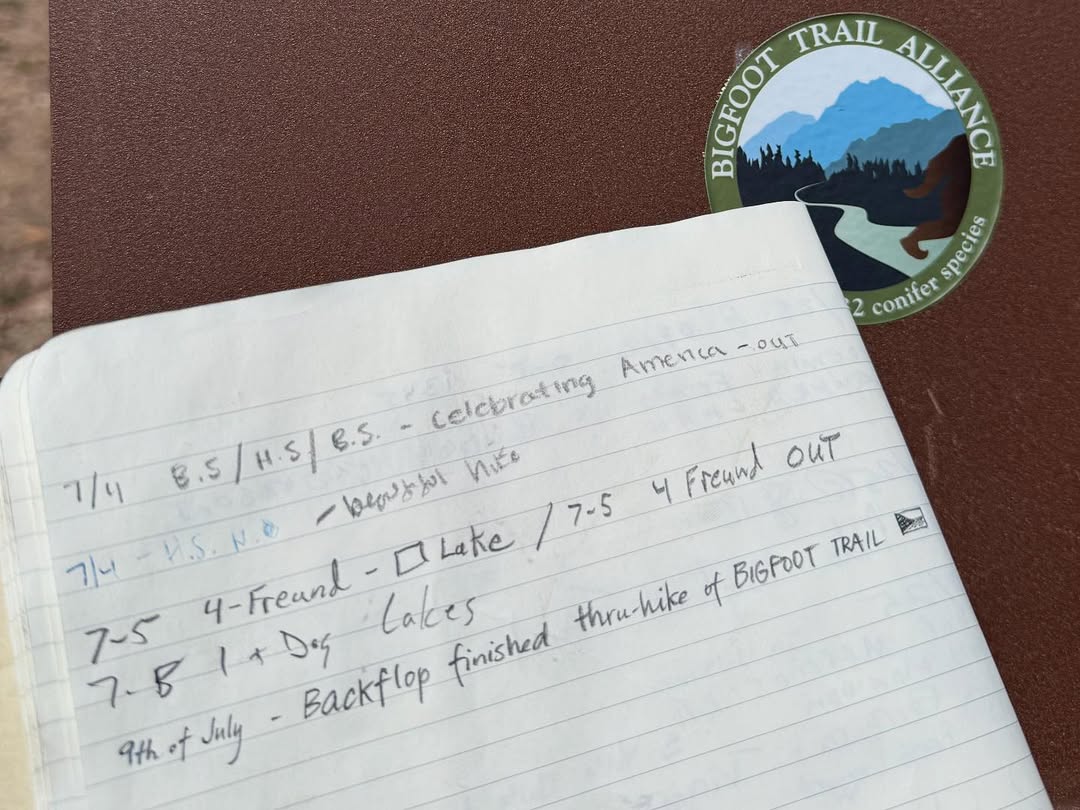 BIGFOOT TRAIL ALLIANCE
32 conifer species
7/4 B.S/H.S/B.S. - Celebrating America - out
7/4 - H.S. N.O - beautiful hike
7-5 4-Freund - □ Lake / 7-5 4 Freund OUT
7-8 1 + Dog Lakes
9th of July - Backflop finished thru-hike of BIGFOOT TRAIL